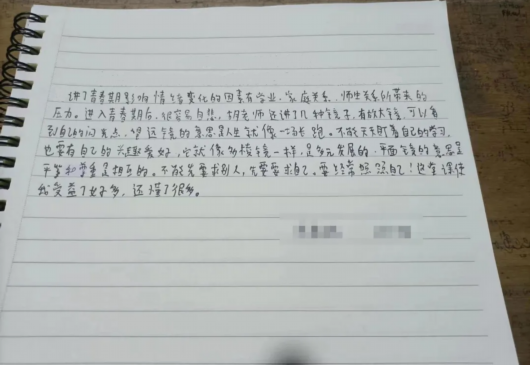 讲了青春期影响情绪变化的因素有学业、家庭关系、师生关系所带来的
压力。进入青春期后,很容易自卑,胡老师还讲了几种镜子,有放大镜,可以看
到自己的闪光点,望远镜的意思是人生就像一场长跑。不能天天盯着自己的学习,
也要有自己的兴趣爱好,它就像多棱镜一样,是多元发展的,平面镜的意思是
平等和尊重是相互的。不能先要求别人,先要要求自己。要经常照照自己!这堂课使
我受益了好多,还懂了很多。